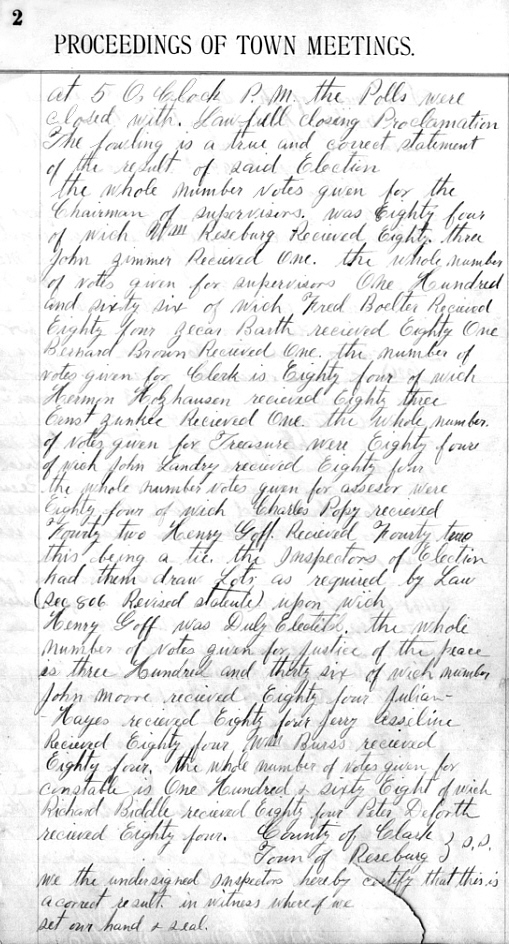 2
PROCEEDINGS OF TOWN MEETINGS.
at 5 O, Clock P. M. the Polls were
closed with. Lawfull closing Proclamation
The fowling is a true and correct statement
of the result of said Election
the whole number votes given for the
Chairman of supervisors. was Eighty four
of wich Wm Reseburg Recieved Eighty three
John zimmer Recieved One. the whole number
of votes given for supervisors One Hundred
and sixty six of wich Fred Boelter Recieved
Eighty four Barth recieved Eighty One
Bernard Brown Recieved One. the number of
votes given for Clerk is Eighty four of wich
Hermyn Holzhausen recieved Eighty three
Ernst Recieved One. the whole number.
of votes given for Treasure were Eighty foure
of wich John Landry recieved Eighty four
the whole number votes given for assesor were
Eighty four of wich Charles recieved
Fourty two Henry Goff. Recieved Fourty two
this being a tie. the Inspectors of Election
had them draw Lots as required by Law
(Sec 806 Revised statute) upon wich
Henry Goff was Duly Elected. the whole
number of votes given for Justice of the peace
is three Hundred and thirty six of wich number
John Moore recieved Eighty four Julian-
Hayes recieved Eighty four Jerry
Recieved Eighty four Wm Burss recieved
Eighty four. the whole number of votes given for
constable is One Hundred & sixty Eight of wich
Richard Biddle recieved Eighty four Peter Deforth
recieved Eighty four. County of Clark
Town of Reseburg } S.S.
we the undersigned Inspectors hereby certify that this is
a correct result. in witness where of we
set our hand & seal.